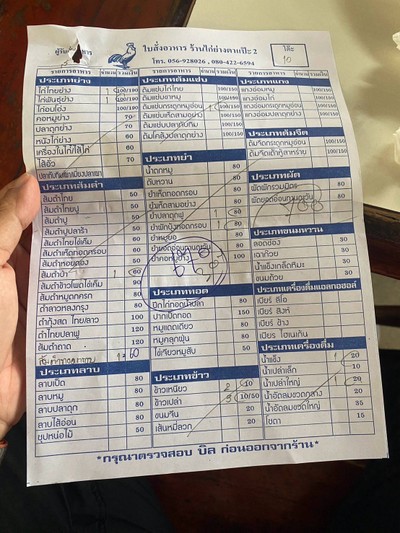 ใบสั่งอาหาร ร้านไก่ย่างตาแป๊ะ 2
โต๊ะ
10
โทร. 056-928026, 080-422-6594
รายการอาหาร จำนวน รวมเงิน
ประเภทย่าง
ไก่ไทยย่าง 100/180
ไก่พันธุ์ย่าง 1 100/180
ไก่อบโอ่ง 100/180
คอหมูย่าง 70
ปลาดุกย่าง 70
หนังไก่ย่าง 60
เครื่องในไก่/ไส้ไก่ 60
ไส้อั่ว 70
ประเภทส้มตำ
ส้มตำไทย 50
ส้มตำไทยปู 50
ส้มตำปู 50
ส้มตำปูปลาร้า 50
ส้มตำไทยไข่เค็ม 60
ส้มตำเห็ดทอดกรอบ 60
ส้มตำหอยแครง 60
ส้มตำป่า 1 80
ส้มตำข้าวโพดไข่เค็ม 90
ส้มตำหมูแดดเดียว 80
ตำลาวหลงกรุง 80
ตำกุ้งสด ไทย/ลาว 100
ตำไทยปลาฟู 120
ส้มตำถาด 120
1= 60
ประเภทลาบ
ลาบเป็ด 80
ลาบหมู 80
ลาบปลาดุก 80
ลาบไส้อ่อน 80
ซุปหน่อไม้ 50
รายการอาหาร จำนวน รวมเงิน
ประเภทต้มแซ่บ
ต้มแซ่บไก่ไทย 100/150
ต้มแซ่บขาหมู 100/150
ต้มแซ่บกระดูกหมูอ่อน 100/150
ต้มแซ่บเห็ดสามอย่าง 100/150
ต้มโคล้งปลาดุกย่าง 100/150
ประเภทยำ
น้ำตกหมู 80
ตับหวาน 80
ยำเห็ดทอดกรอบ 80
ยำเห็ดสามอย่าง 80
ยำปลาดุกฟู 80
ยำผักบุ้งทอดกรอบ 100
ยำหมูยอ 80
80
ยำคอหมูย่าง 100
ประเภททอด
ปีกไก่ทอดน้ำปลา 80
ปากเป็ดทอด 150
หมูแดดเดียว 80
หมูคลุกฝุ่น 80
ไข่เจียวหมูสับ 50
ประเภทข้าว
ข้าวเหนียว 2 10
ข้าวเปล่า 10/50
ขนมจีน 20
เส้นหมี่ลวก 20
รายการอาหาร จำนวน รวมเงิน
ประเภทแกง
แกงอ่อมหมู 100/150
แกงอ่อมไก่ 100/150
แกงอ่อมกระดูกหมูอ่อน 100/150
แกงอ่อมปลาดุกย่าง 100/150
ประเภทต้มจืด
ต้มจืดกระดูกหมูอ่อน 100/150
ต้มจืดเต้าหู้สาหร่าย 100/150
ประเภทผัด
ผัดผักรวมมิตร 80
80
ประเภทขนมหวาน
ลอดช่อง 30
เฉาก๊วย 30
น้ำแข็งเกล็ดหิมะ 30
ขนมถ้วย 30
ประเภทเครื่องดื่มแอลกอฮอล์
เบียร์ ลีโอ
เบียร์ สิงห์
เบียร์ ช้าง
เบียร์ ไฮเนเก้น
ประเภทเครื่องดื่ม
น้ำแข็ง 1 20
น้ำเปล่าเล็ก 10
น้ำเปล่าใหญ่ 20
น้ำอัดลมขวดกลาง 20
น้ำอัดลมขวดใหญ่ 35
โซดา 15
*กรุณาตรวจสอบ บิล ก่อนออกจากร้าน*